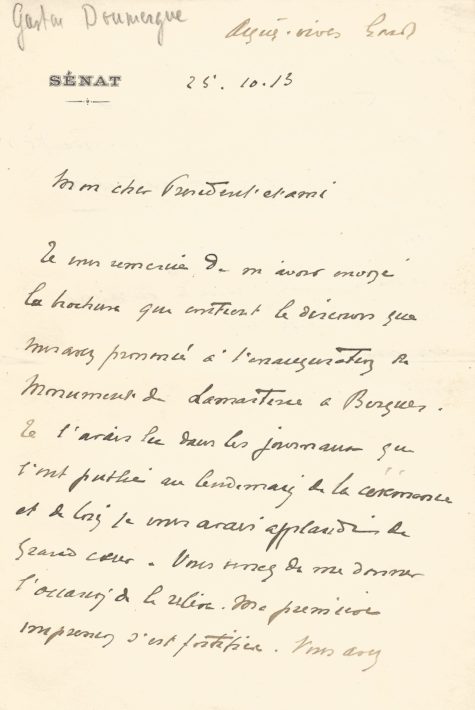 Gaston Doumergue
Aigues-vives Gard
SÉNAT
25. 10. 13
Mon cher Président et ami
Je vous remercie de m'avoir envoyé
la brochure qui contient le discours que
vous avez prononcé à l'inauguration du
Monument de Lamartine à Bergues.
Je l'avais lu dans les journaux qui
l'ont publié au lendemain de la cérémonie
et de loin je vous avais applaudi de
grand cœur. Vous venez de me donner
l'occasion de le relire. Ma première
impression s'est fortifiée. Vous avez